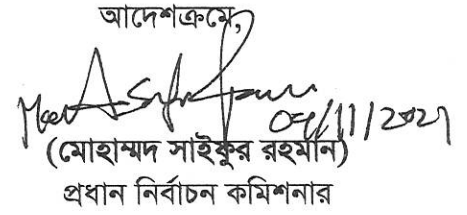 আদেশক্রমে,
(মোহাম্মদ সাইফুর রহমান)
প্রধান নির্বাচন কমিশনার